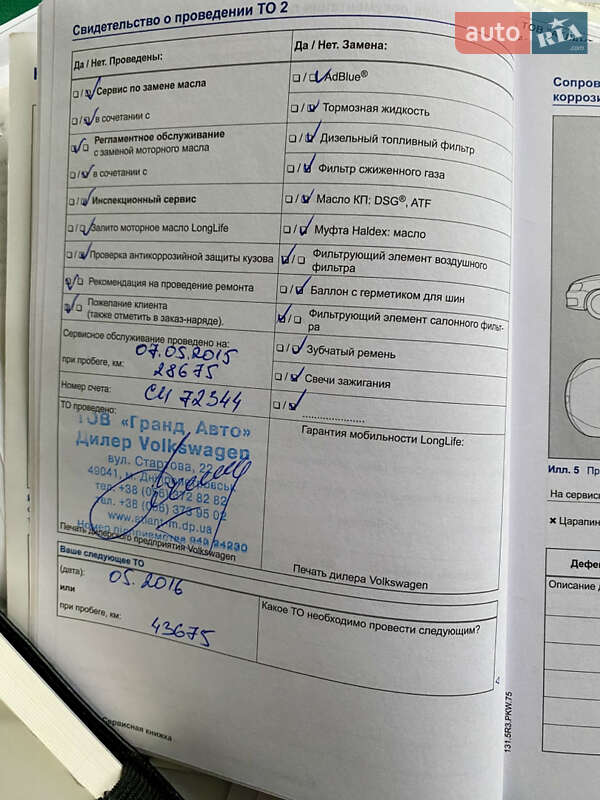 Свидетельство о проведении ТО 2
auto RIA .com
ТОВ
Да / Нет. Проведены:
❏/❏ Сервис по замене масла
❏/❏ в сочетании с
❏/❏ Регламентное обслуживание
с заменой моторного масла
❏/❏ в сочетании с
❏/❏ Инспекционный сервис
❏/❏ Залито моторное масло LongLife
❏/❏ Проверка антикоррозийной защиты кузова
❏/❏ Рекомендация на проведение ремонта
❏/❏ Пожелание клиента
(также отметить в заказ-наряде).
Сервисное обслуживание проведено на:
07.05.2015
при пробеге, км: 28675
Номер счета: СЧ 72344
ТО проведено:
ТОВ «Гранд Авто»
Дилер Volkswagen
вул. Стартова, 22
49041, м. Дніпропетровськ
тел. +38 (056) 372 82 82
тел. +38 (056) 373 95 02
www.atlant-m.dp.ua
Номер підприємства
Печать дилерского предприятия Volkswagen
Да / Нет. Замена:
❏/❏ AdBlue®
❏/❏ Тормозная жидкость
❏/❏ Дизельный топливный фильтр
❏/❏ Фильтр сжиженого газа
❏/❏ Масло КП: DSG®, ATF
❏/❏ Муфта Haldex: масло
❏/❏ Фильтрующий элемент воздушного
фильтра
❏/❏ Баллон с герметиком для шин
❏/❏ Фильтрующий элемент салонного фильт-
ра
❏/❏ Зубчатый ремень
❏/❏ Свечи зажигания
❏/❏ ....................
Гарантия мобильности LongLife:
Печать дилера Volkswagen
Ваше следующее ТО
(дата): 05.2016
или
при пробеге, км: 43675
Какое ТО необходимо провести следующим?
4
Сервисная книжка
131.5R3.PKW.75
Сопров
корроз
Илл. 5 Пр
На сервис
✖ Царапин
Дефе
Описание д